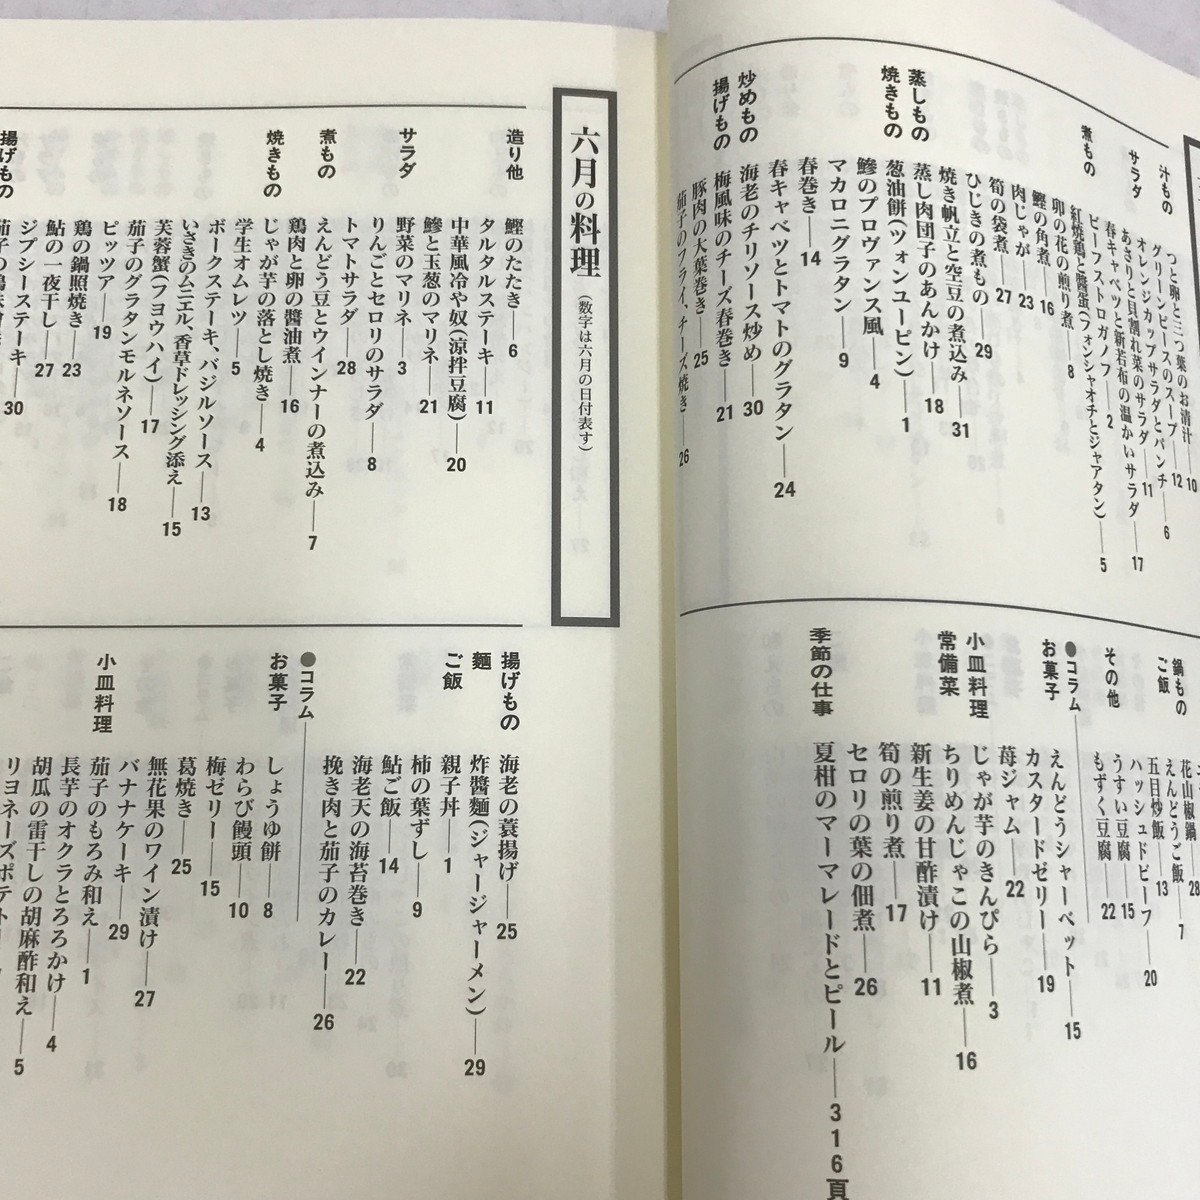 汁もの
つと卵と三つ葉のお清汁──10
グリーンピースのスープ──12
オレンジカップサラダとパンチ──6
サラダ
あさりと貝割れ菜のサラダ──11
春キャベツと新若布の温かいサラダ──17
ビーフストロガノフ──2
煮もの
紅焼鶏と醬蛋(フォンシャオチとジャアタン)──5
卯の花の煎り煮──8
鰹の角煮──16
肉じゃが──23
筍の袋煮──27
ひじきの煮もの──29
焼き帆立と空豆の煮込み──31
蒸しもの
蒸し肉団子のあんかけ──18
焼きもの
葱油餅(ツォンユーピン)──1
鰺のプロヴァンス風──4
マカロニグラタン──9
春巻き──14
春キャベツとトマトのグラタン──24
炒めもの
海老のチリソース炒め──30
揚げもの
梅風味のチーズ春巻き──21
豚肉の大葉巻き──25
茄子のフライ、チーズ焼き──26
鍋もの
花山椒鍋──28
ご飯
えんどうご飯──7
五目炒飯──13
ハッシュドビーフ──20
その他
うすい豆腐──15
もずく豆腐──22
●コラム
お菓子
えんどうシャーベット──15
カスタードゼリー──19
苺ジャム──22
小皿料理
じゃが芋のきんぴら──3
常備菜
ちりめんじゃこの山椒煮──16
新生姜の甘酢漬け──11
筍の煎り煮──17
セロリの葉の佃煮──26
季節の仕事
夏柑のマーマレードとピール──316頁
六月の料理(数字は六月の日付表す)
造り他
鰹のたたき──6
タルタルステーキ──11
中華風冷や奴(涼拌豆腐)──20
鰺と玉葱のマリネ──21
サラダ
野菜のマリネ──3
りんごとセロリのサラダ──8
トマトサラダ──28
煮もの
えんどう豆とウインナーの煮込み──7
鶏肉と卵の醬油煮──16
焼きもの
じゃが芋の落とし焼き──4
学生オムレツ──5
ポークステーキ、バジルソース──13
いさきのムニエル、香草ドレッシング添え──15
芙蓉蟹(フヨウハイ)──17
茄子のグラタンモルネソース──18
ピッツア──19
鶏の鍋照焼き──23
鮎の一夜干し──27
ジプシーステーキ──30
揚げもの
揚げもの
海老の蓑揚げ──25
麺
炸醬麵(ジャージャーメン)──29
ご飯
親子丼──1
柿の葉ずし──9
鮎ご飯──14
海老天の海苔巻き──22
挽き肉と茄子のカレー──26
●コラム
お菓子
しょうゆ餅──8
わらび饅頭──10
梅ゼリー──15
葛焼き──25
無花果のワイン漬け──27
バナナケーキ──29
小皿料理
茄子のもろみ和え──1
長芋のオクラとろろかけ──4
胡瓜の雷干しの胡麻酢和え──5
リヨネーズポテト